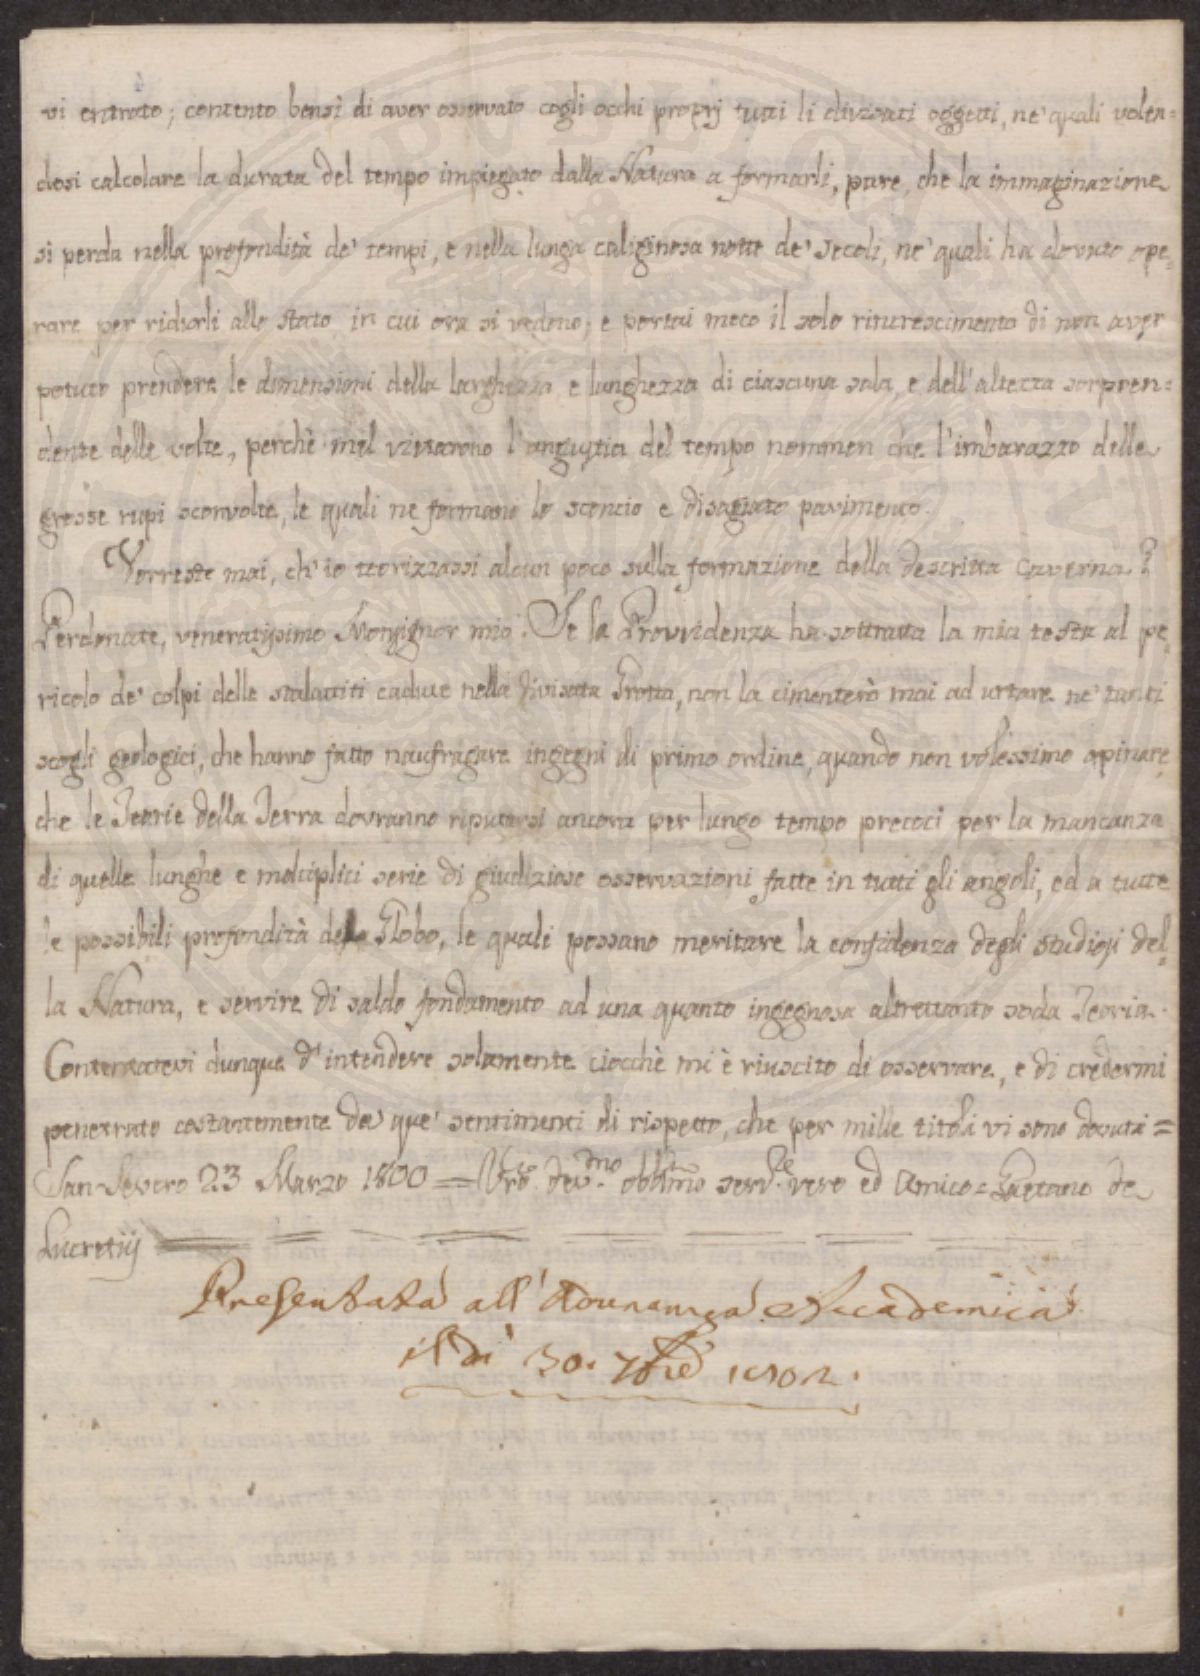 vi entrato; contento bensì di aver osservato cogli occhi proprj tutti li divisati oggetti, ne' quali volen=
dosi calcolare la durata del tempo impiegato dalla Natura a formarli, pare, che la immaginazione
si perda nella profondità de' tempi, e nella lunga caliginosa notte de' secoli, ne' quali ha dovuto ope=
rare per ridurli allo stato in cui ora si vedono; e portai meco il solo rincrescimento di non aver
potuto prendere le dimensioni della larghezza e lunghezza di ciascuna sala, e dell'altezza sorpren=
dente delle volte, perchè mel vietarono l'angustia del tempo nommen che l'imbarazzo delle
grosse rupi sconvolte, le quali ne formano lo sconcio e disagiato pavimento.
Vorreste mai, ch'io teorizzassi alcun poco sulla formazione della descritta Caverna?
Perdonate, veneratissimo Monsignor mio. Se la Provvidenza ha sottratta la mia testa al pe=
ricolo de' colpi delle stalattiti cadute nella divisata Grotta, non la cimenterò mai ad urtare ne' tanti
scogli geologici, che hanno fatto naufragare ingegni di primo ordine, quando non volessimo opinare
che le Teorie della Terra dovranno riputarsi ancora per lungo tempo precoci per la mancanza
di quelle lunghe e molciplici serie di giudiziose osservazioni fatte in tutti gli angoli, ed a tutte
le possibili profondità del Globo, le quali possano meritare la confidenza degli studiosi del=
la Natura, e servire di saldo fondamento ad una quanto ingegnosa altrettanto soda Teoria.
Contentatevi dunque d'intendere solamente ciocchè mi è riuscito di osservare, e di credermi
penetrato costantemente da que' sentimenti di rispetto, che per mille titoli vi sono dovuti =
San Severo 23 Marzo 1800 = Vrō. Dev.mo obblmō serv.e vero ed Amico = Gaetano de
Lucretiis
Presentata all'Adunanza Accademica
il dì 30. 7bre 1802.